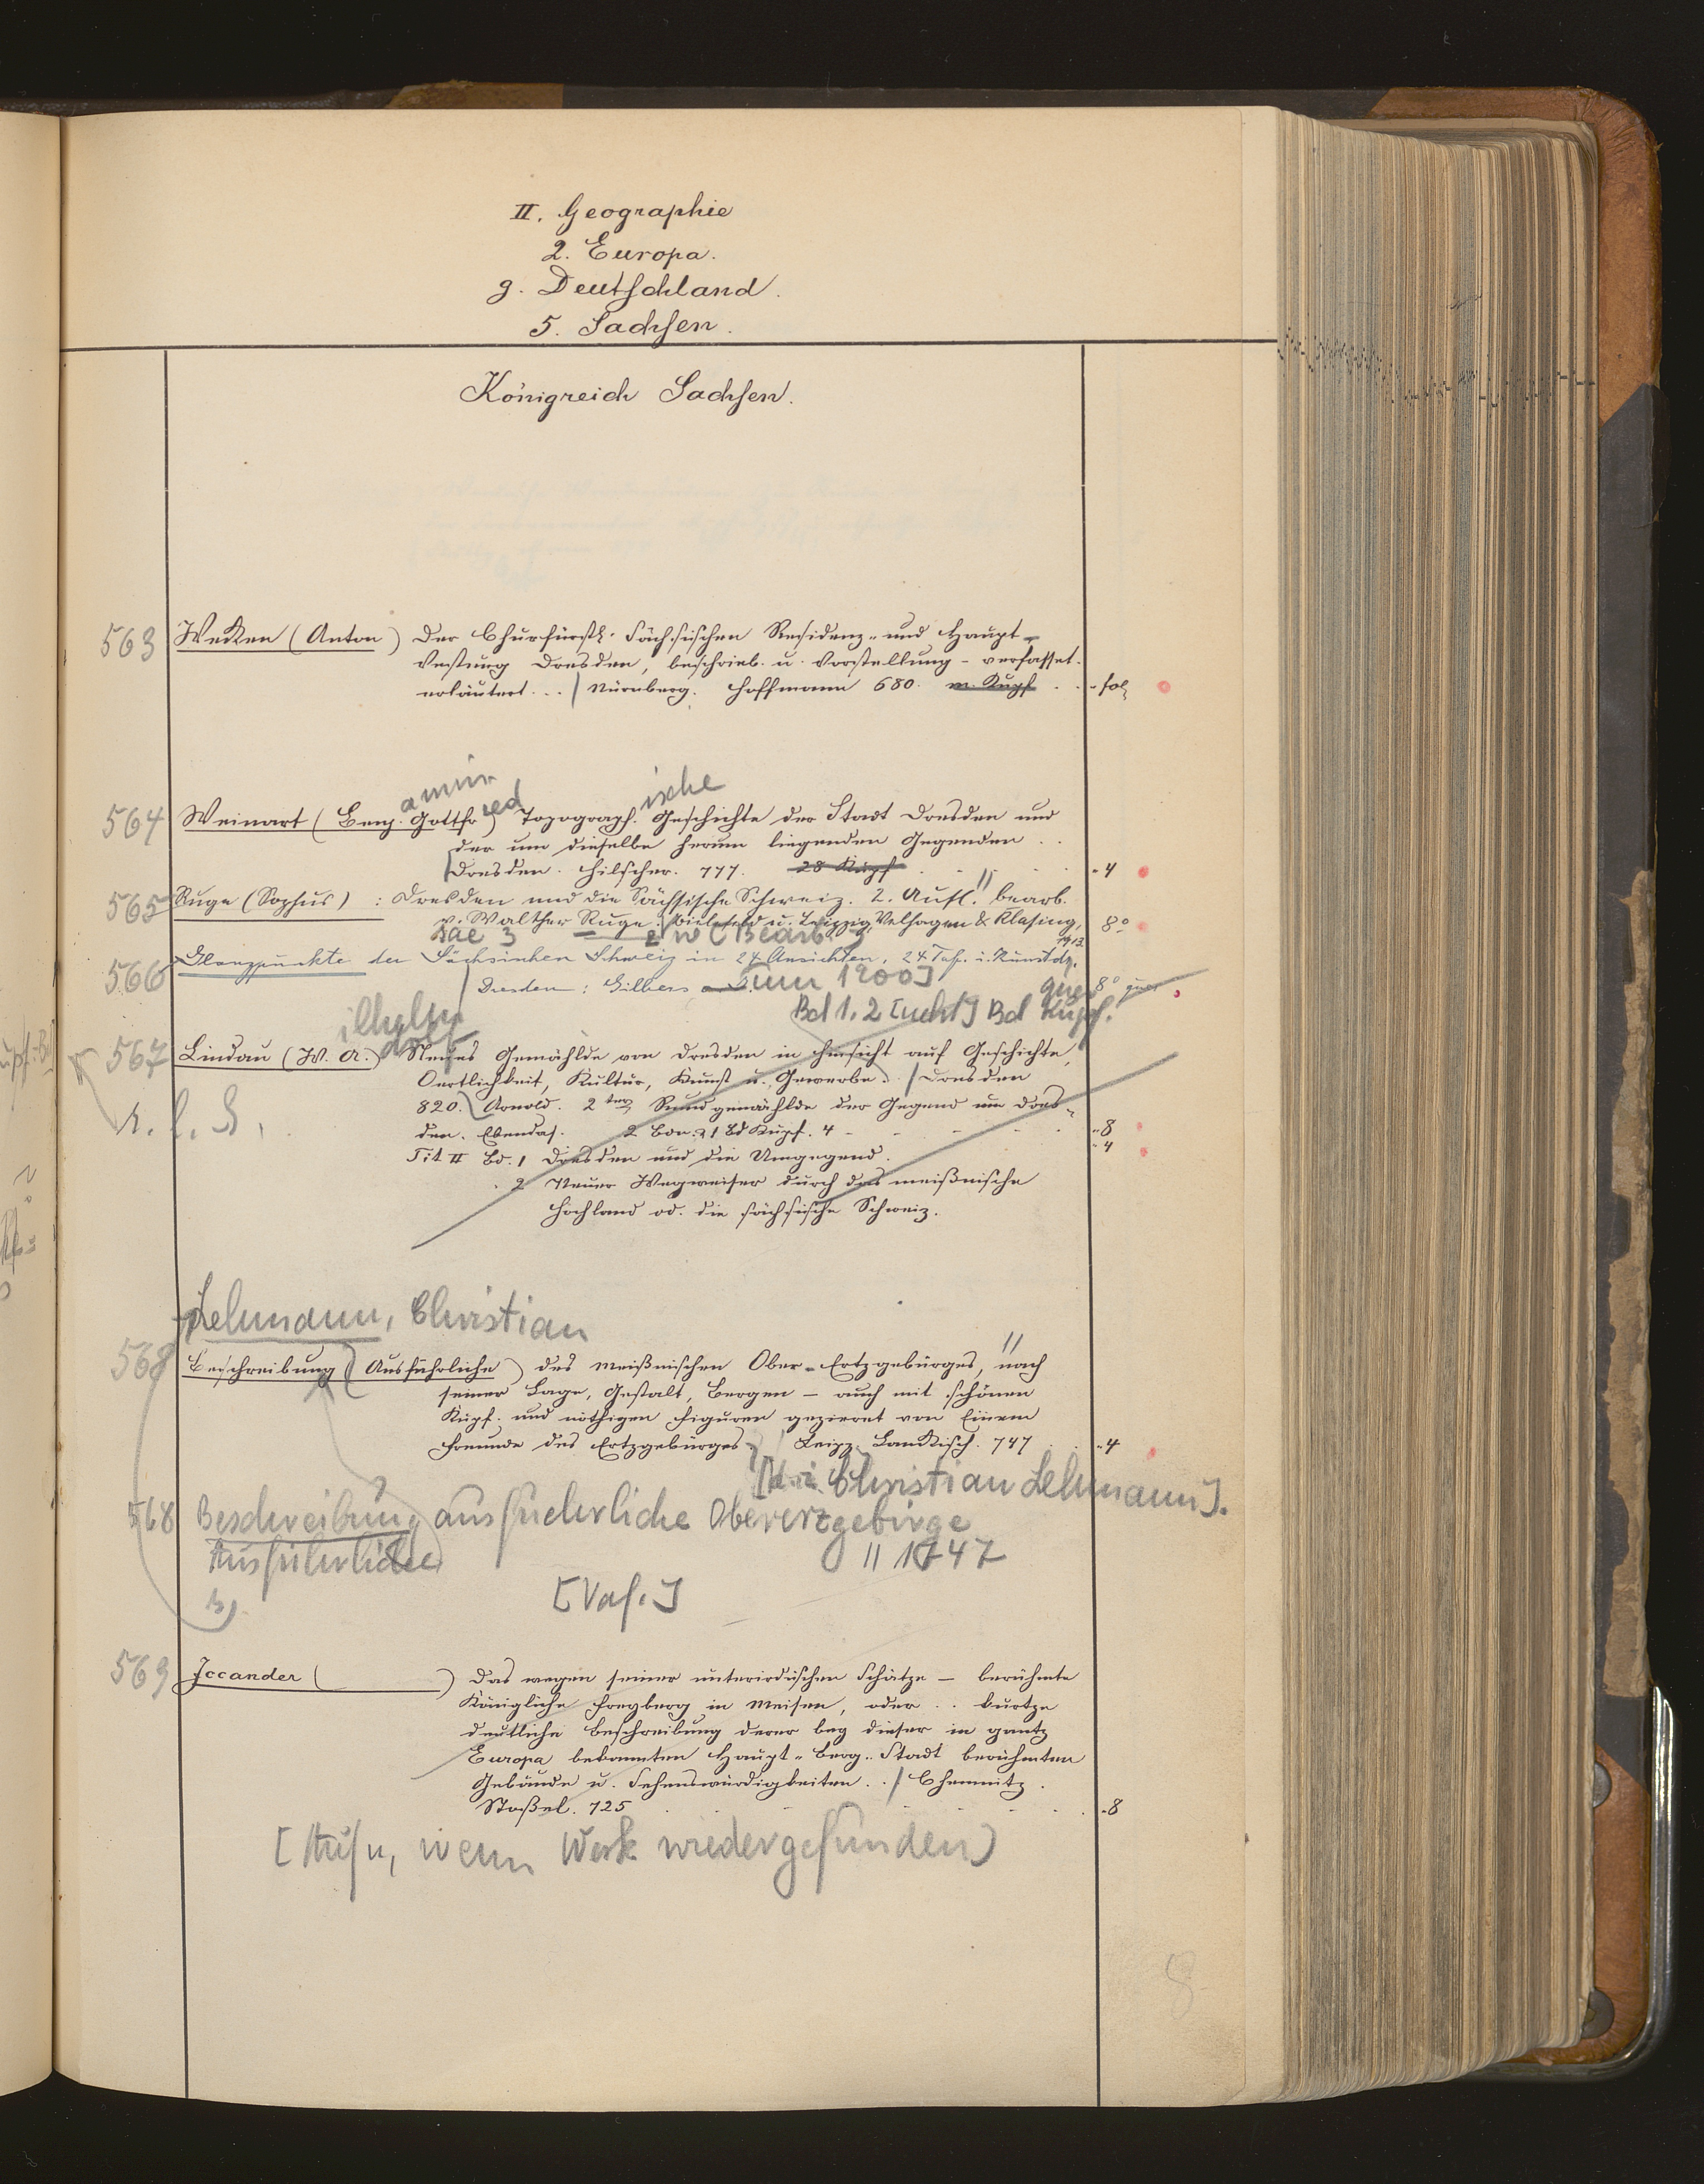 II. Geographie
2. Europa.
g. Deutschland.
5. Sachsen.
Königreich Sachsen.
563 Wecken (Anton) Der Churfürstl. Sächsischen Residenz- und Haupt-
Vestung Dresden, beschrieb. u. Vorstellung - verfasset.
erläutert ... / Nürnberg. Hoffmann 680. m. Kupf . . fol
amin red ische
564 Weinart (Benj. Gottfr) Topograph. Geschichte der Stadt Dresden und
der um dieselbe herum liegenden Gegenden . .
/ Dresden. Hilscher. 777. 28 Kupf . . 4
565 Ruge (Sophus) : Dresden und die Sächsische Schweiz. 2. Aufl. // bearb.
v. Walther Ruge. / Bielefeld u. Leipzig, Velhagen & Klasing, 8°
1913.
566 Glanzpunkte der Sächsischen Schweiz in 24 Ansichten. 24 Taf. i. Kunstdr.
/ Dresden: Gilbers [um 1900] quer 8° quer
Bd 1.2 [nebst] Bd Kupf.
ilhelm
567 Lindau (W. A.) Neues Gemählde von Dresden in Hinsicht auf Geschichte,
Oertlichkeit, Kultur, Kunst u. Gewerbe. / Dresden
820. Arnold. 2ter Rundgemählde der Gegend um Dres-
den. Ebendas. 2 Bde. 1 Bd Kupf. 4 - - 8
Tit II Bd. 1 Dresden und die Umgegend. 4
2 Neuer Wegweiser durch das meißnische
Hochland od. die sächsische Schweiz.
Lehmann, Christian
568 Beschreibung (Ausführliche) des Meißnischen Ober-Ertzgebürges, // nach
seiner Lage, Gestalt, Bergen - auch mit schönen
Kupf. und nöthigen Figuren gezieret von Einem
Freunde des Ertzgebürges. / Leipz. Lanckisch. 747 . . 4
Christian Lehmann].
568 Beschreibung ausfuehrliche Obererzgebirge
Ausführliche // 1747
[Vaf.]
569 Iccander ( ) Das wegen seiner unterirdischen Schätze - berühmte
Königliche Freyberg in Meisen, oder .. kurtze
deutliche Beschreibung derer bey dieser in gantz
Europa bekannten Haupt- Berg- Stadt berühmten
Gebäude u. Sehenswürdigkeiten . . / Chemnitz.
Stoßel. 725 . . 8
[Aufn, wenn Werk wiedergefunden]
8